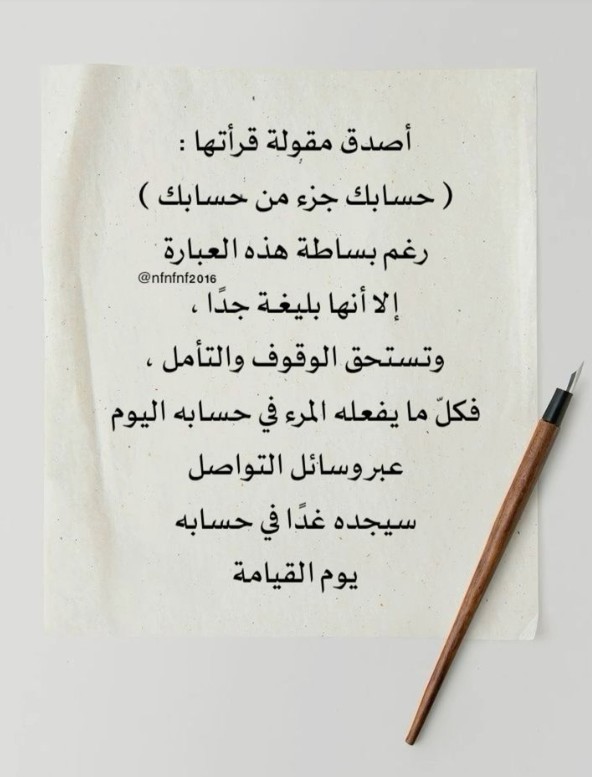 أصدق مقولة قرأتها :
( حسابك جزء من حسابك )
رغم بساطة هذه العبارة
@nfnfnf2016
إلا أنها بليغة جدًا ،
وتستحق الوقوف والتأمل ،
فكلّ ما يفعله المرء في حسابه اليوم
عبر وسائل التواصل
سيجده غدًا في حسابه
يوم القيامة